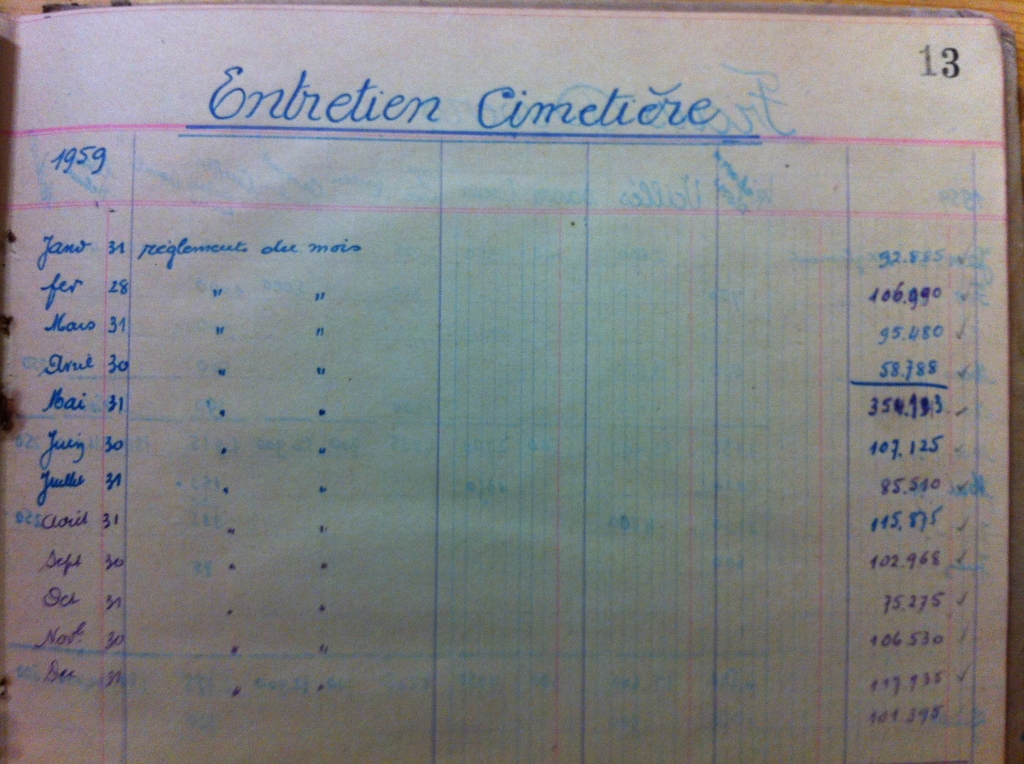 13
Entretien Cimetière
1959
Janv 31 règlement du mois 92.885 ✓
fev 28 " " 106.990 ✓
Mars 31 " " 95.480 ✓
Avril 30 " " 58.788 ✓
Mai 31 " " 354.143 ✓
Juin 30 " " 107.125 ✓
Juillet 31 " " 85.510 ✓
Août 31 " " 115.875 ✓
Sept 30 " " 102.968 ✓
Oct 31 " " 75.275 ✓
Nov. 30 " " 106.530
Dec 31 " " 117.935 ✓
101.395